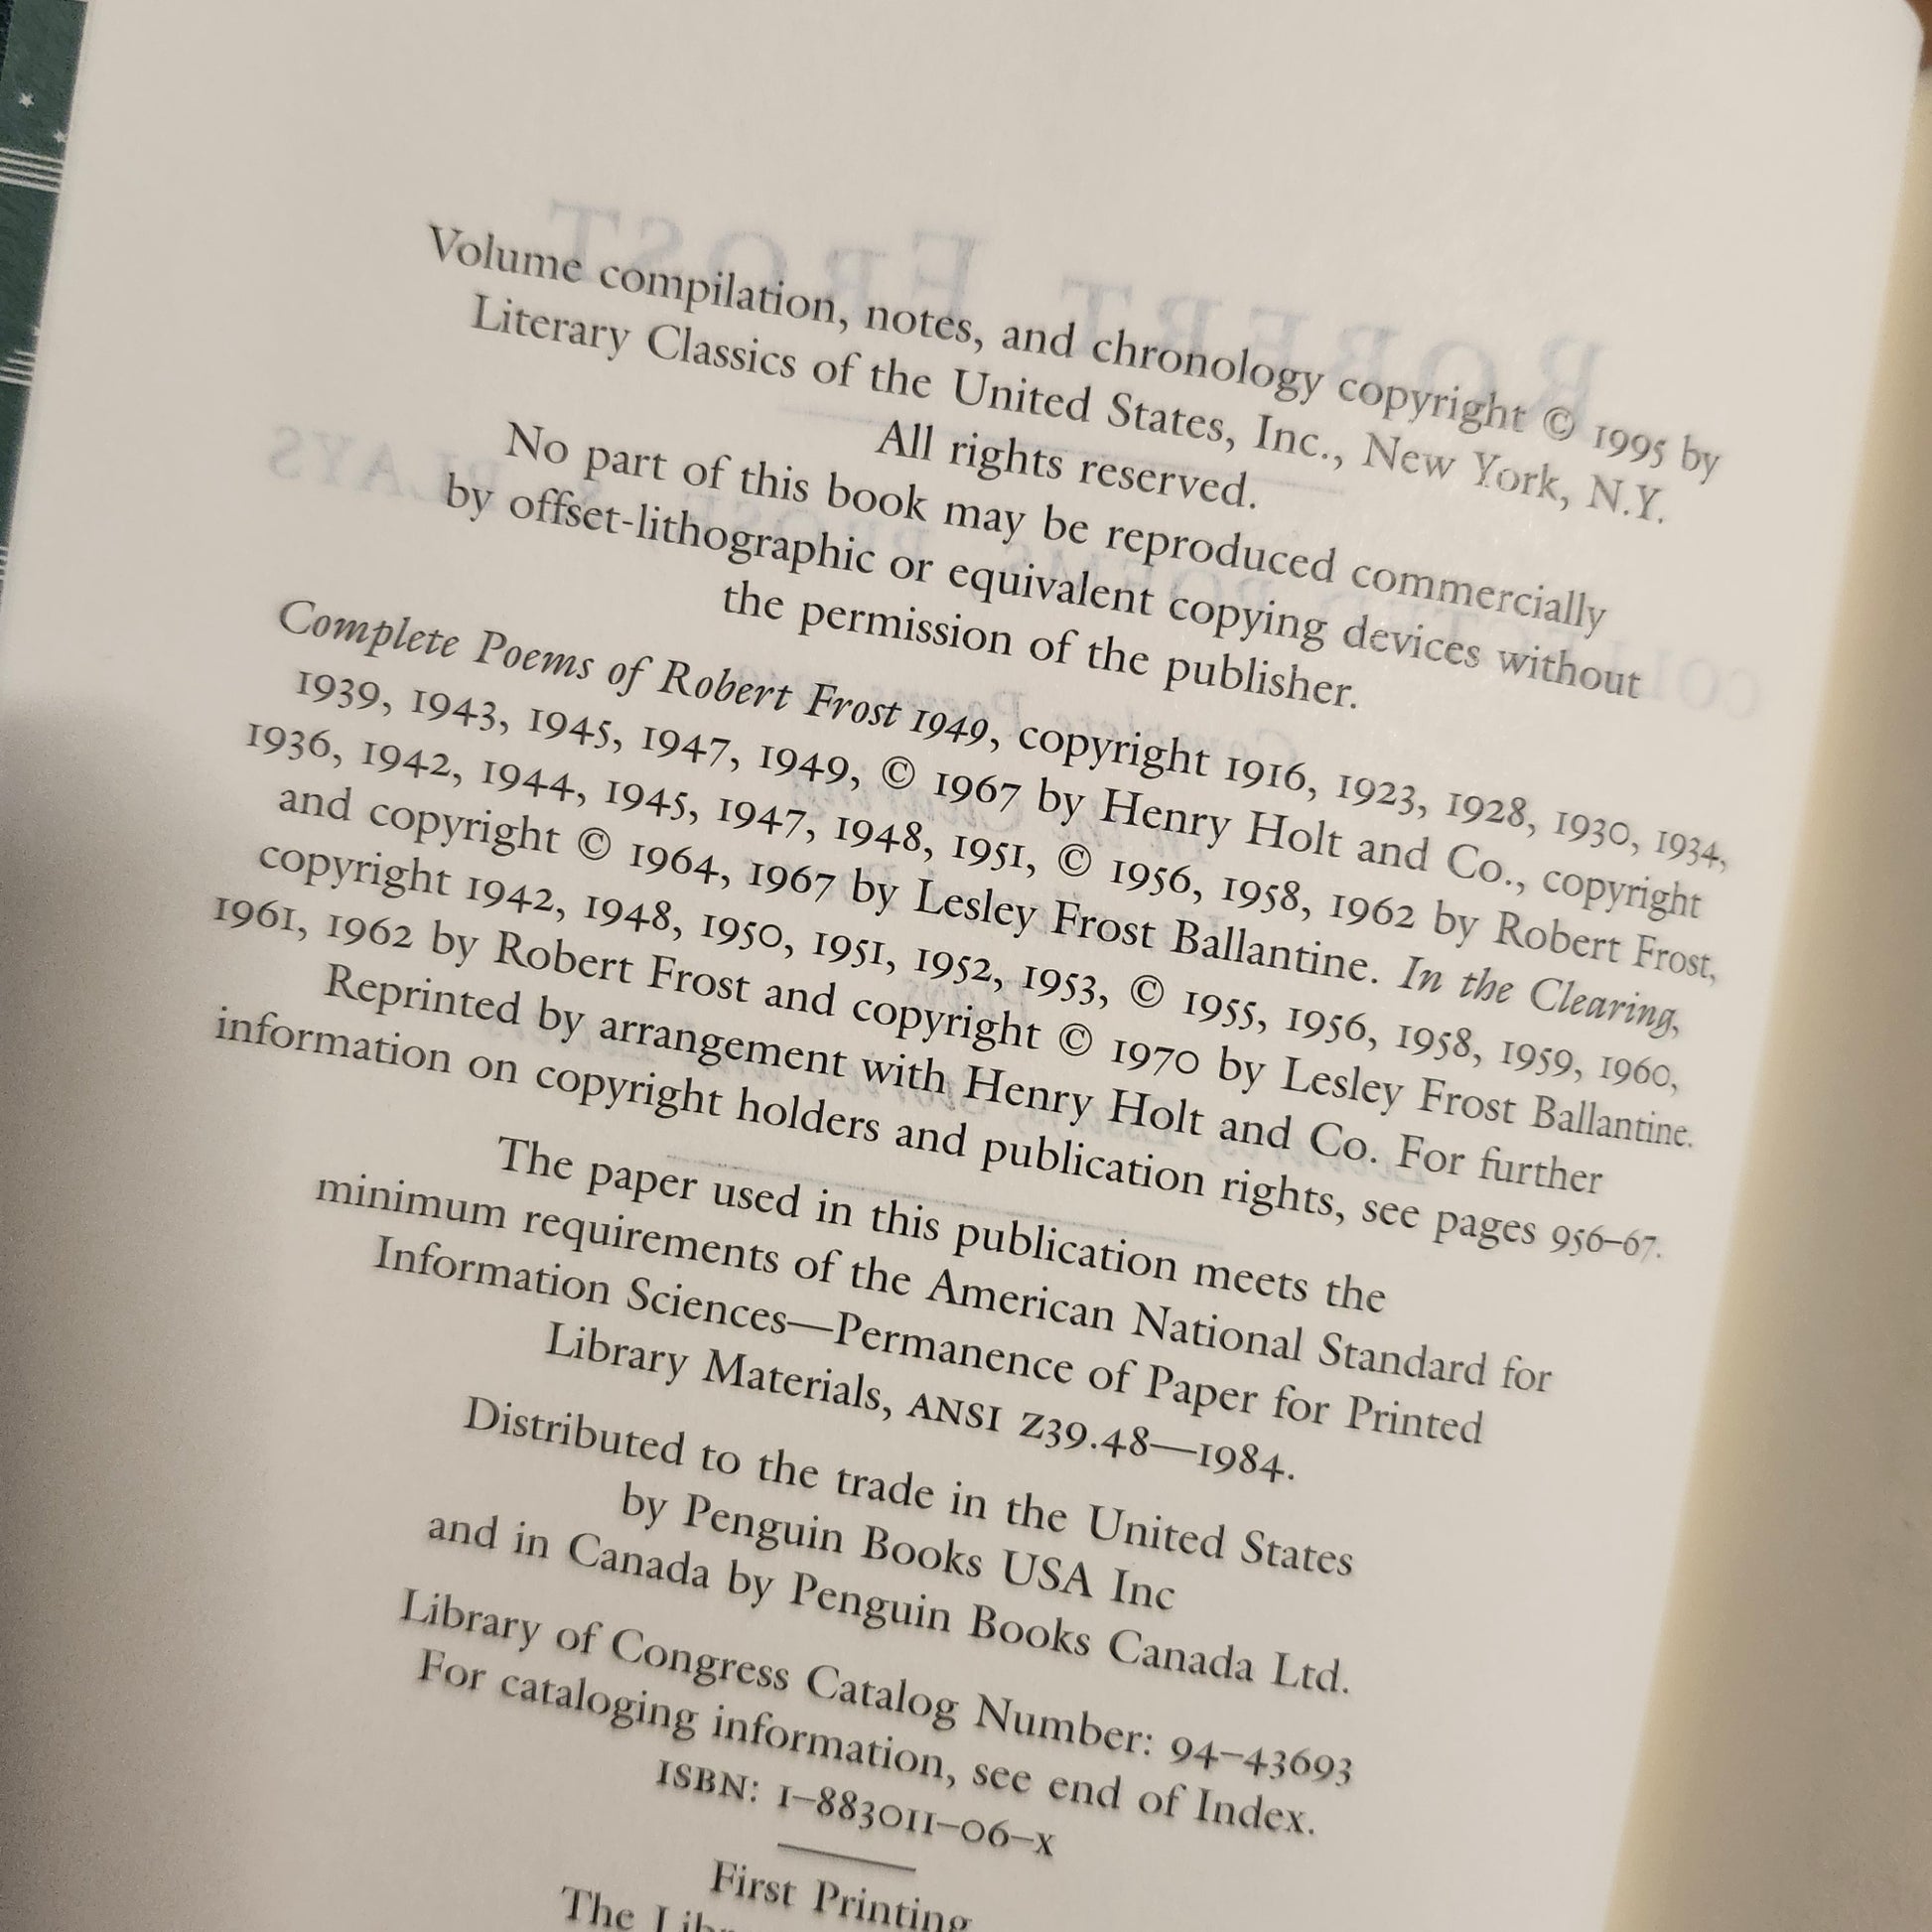 Volume compilation, notes, and chronology copyright © 1995 by
Literary Classics of the United States, Inc., New York, N.Y.
All rights reserved.
No part of this book may be reproduced commercially
by offset-lithographic or equivalent copying devices without
the permission of the publisher.
Complete Poems of Robert Frost 1949, copyright 1916, 1923, 1928, 1930, 1934,
1939, 1943, 1945, 1947, 1949, © 1967 by Henry Holt and Co., copyright
1936, 1942, 1944, 1945, 1947, 1948, 1951, © 1956, 1958, 1962 by Robert Frost,
and copyright © 1964, 1967 by Lesley Frost Ballantine. In the Clearing,
copyright 1942, 1948, 1950, 1951, 1952, 1953, © 1955, 1956, 1958, 1959, 1960,
1961, 1962 by Robert Frost and copyright © 1970 by Lesley Frost Ballantine.
Reprinted by arrangement with Henry Holt and Co. For further
information on copyright holders and publication rights, see pages 956–67.
The paper used in this publication meets the
minimum requirements of the American National Standard for
Information Sciences—Permanence of Paper for Printed
Library Materials, ANSI Z39.48—1984.
Distributed to the trade in the United States
by Penguin Books USA Inc
and in Canada by Penguin Books Canada Ltd.
Library of Congress Catalog Number: 94–43693
For cataloging information, see end of Index.
ISBN: 1–883011–06–X
First Printing
The